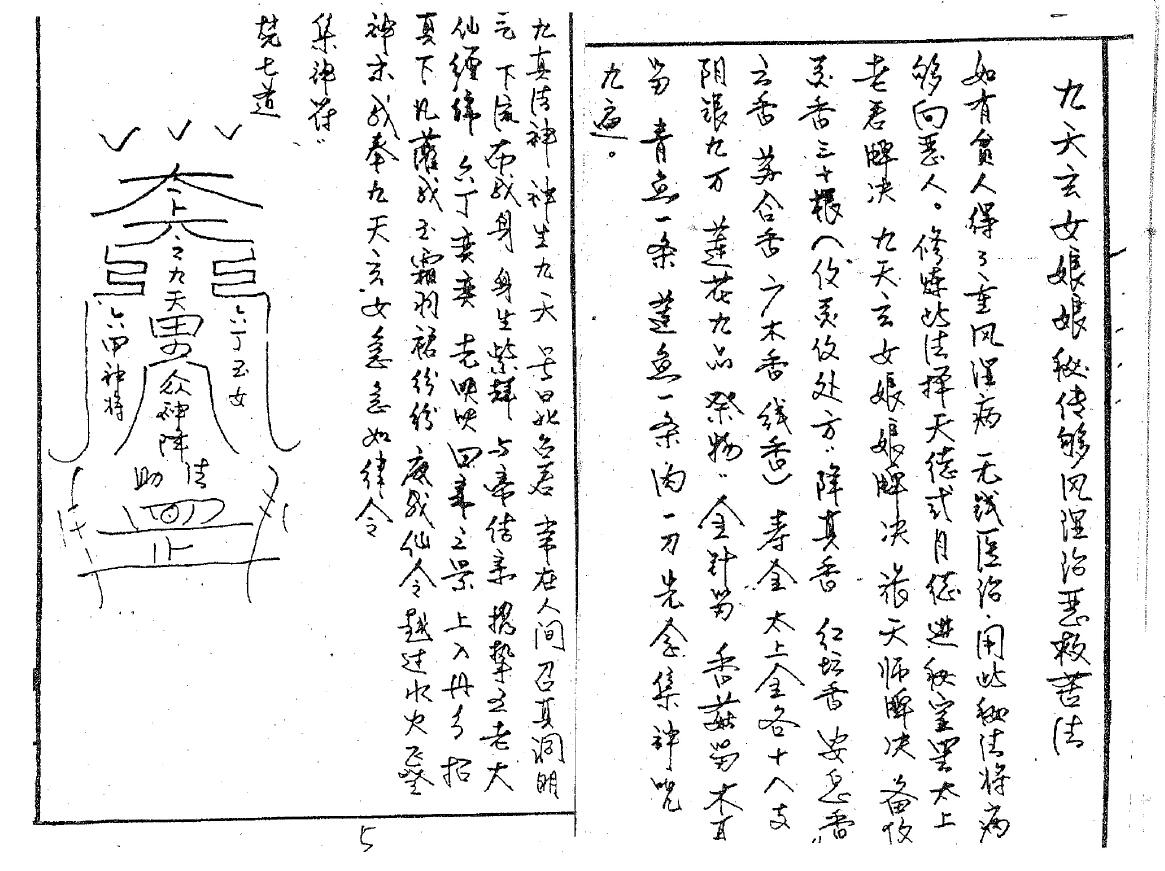 九天玄女娘娘秘传移风湿治恶救苦法
如有贫人得了重风湿病 无钱医治.用此秘法将病
移向恶人。修炼此法择天德或月德进秘室 太上
老君牌决 九天玄女娘娘牌决 张天师牌决 备伩
灵香三十根八伩灵伩处方"降真香 红坛香 安息香
云香 苏合香 广木香 线香) 寿金太上金各十八支
阴 九万 莲花九品 祭物"金针 香菇 木耳
青魚一条 莲魚一条肉一刀先念集神咒
九遍。
九真法神 神生九天 号曰北 君 常在人间召真洞明
元 下流布我身 身生紫 与帝结亲 五老大
仙缠 六丁奕奕 光映映 四 之景 上入丹 招
真下凡 我玉霜羽裙纷纷 度我仙令越过水火
神示我奉九天玄女急急如律令
集神符"
焚七道
上
之九天
六丁玉女
六甲神将
众神降
法助
5